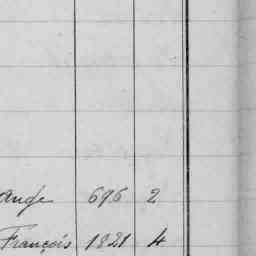 ange 696 2
François 1821 4